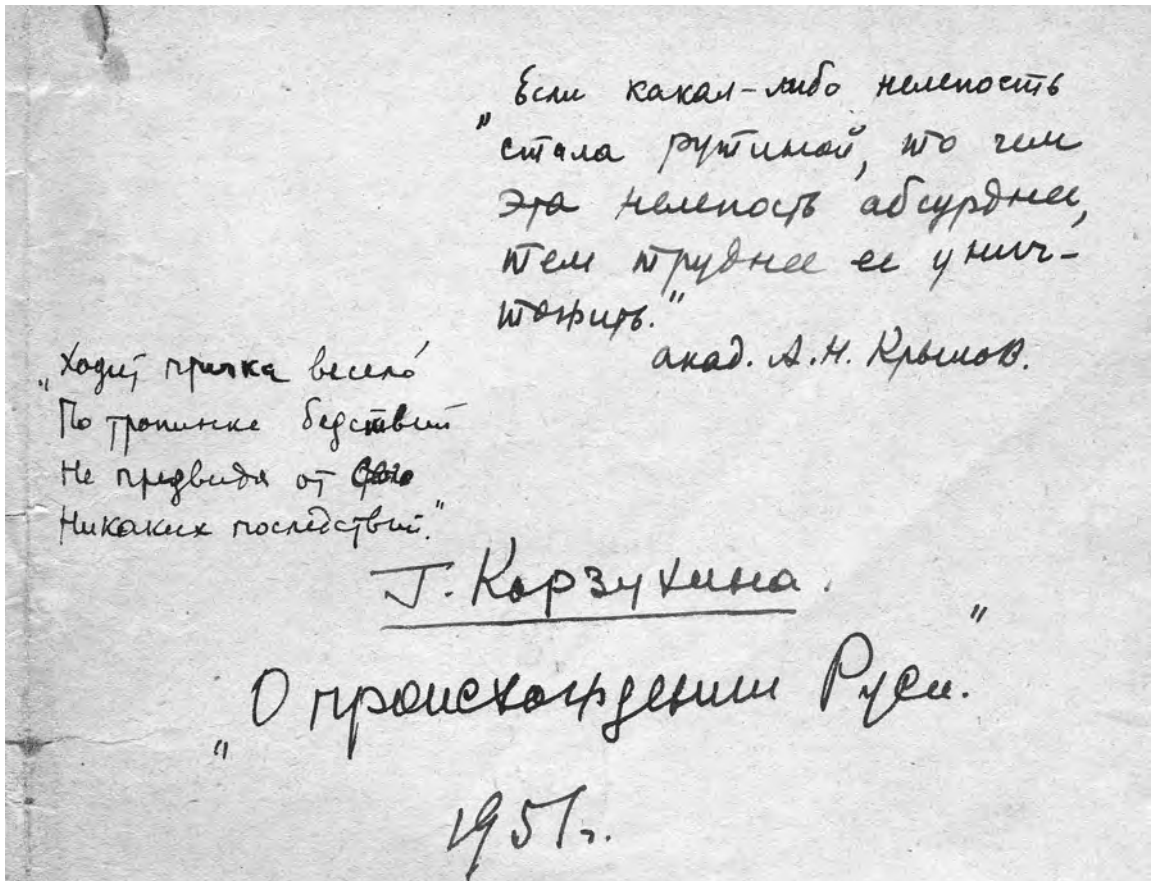 „Если какая-либо нелепость
стала рутиной, то чем
эта нелепость абсурднее,
тем труднее ее унич-
тожить."
акад. А.Н. Крылов.
„Ходит птичка весело
По тропинке бедствий
Не предвидя от
Никаких последствий."
Г. Корзухина.
„О происхождении Руси."
1951г.